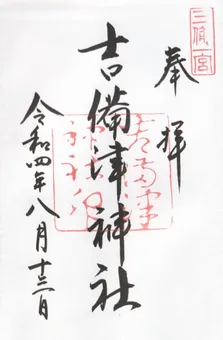 三備一宮
奉拝
吉備津神社
令和四年八月十三日